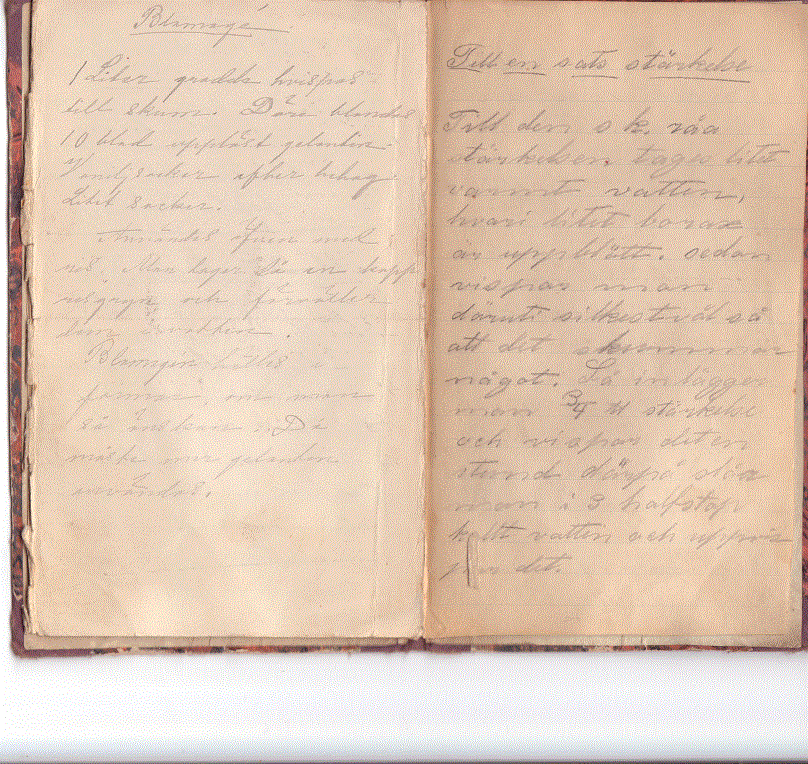 Blamagé
1 Liter grädda hvispas
till skum. Däri blandas
10 blad upplöst gelantin.
Vaniljsocker efter behag.
Litet socker.
Användes även med
ris. Man tager då en kopp
risgryn och förväller
dem i vatten.
Blamagén hälles i
formar, om man
så önskar. Då
måste mer gelantin
användas.
Till en sats stärkelse
Till den s k. råa
stärkelsen, tages litet
varmt vatten,
hvari litet borax
är uppblött. sedan
vispas man
däruti silkestvål så
att det skummar
något. Så inlägger
man 3/4 ℔ stärkelse
och vispar det en
stund därpå slår
man i 3 halfstop
kallt vatten och uppvis
par det.